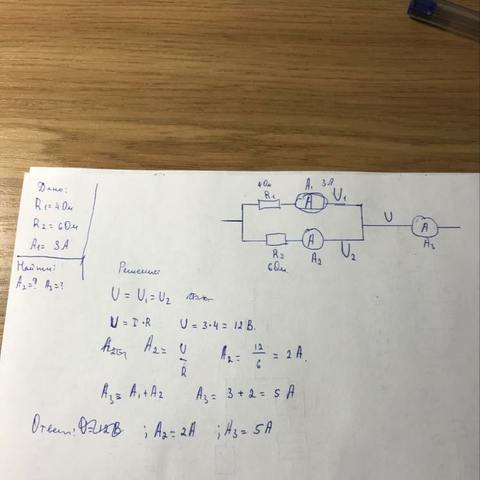 Дано:
R1 = 4 Ом
R2 = 6 Ом
A1 = 3 А
Найти:
A2 = ? A3 = ?
4 Ом
R1
A1 3 А
A
U1
R2
6 Ом
A
A2
U2
U
A
A3
Решение:
U = U1 = U2
U = I · R U = 3 · 4 = 12 В.
A2 = U/R A2 = 12/6 = 2 А.
A3 = A1 + A2 A3 = 3 + 2 = 5 А
Ответ: ; A2 = 2 А ; A3 = 5 А